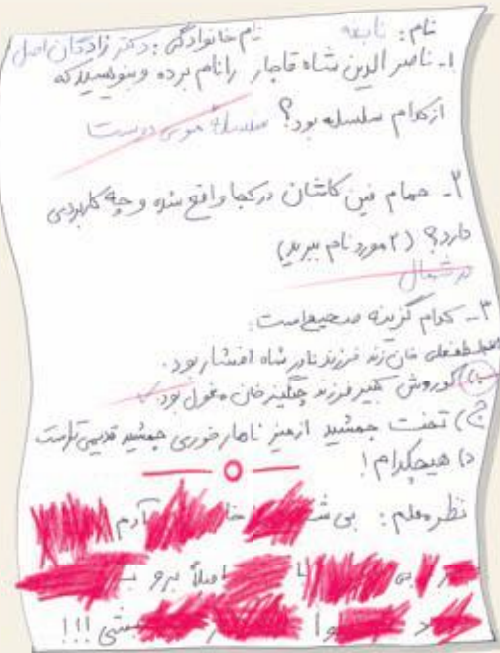 نام: نابغه نام خانوادگی: دکتر زادگان اصل
۱- ناصر الدین شاه قاجار را نام برده و بنویسید که
از کدام سلسله بود؟ سلسله موی دوست
۲- حمام فین کاشان در کجا واقع شده و چه کاربردی
دارد؟ (۲ مورد نام ببرید)
در شمال
۳- کدام گزینه صحیح است:
الف) لطفعلی خان زند فرزند نادر شاه افشار بود.
ب) کوروش کبیر فرزند چنگیز خان مغول بود.
ج) تخت جمشید از میز ناهار خوری جمشید قدیمی تر است
د) هیچکدام!
نظر معلم: بی ش آدم
بی اصلاً برو
!!!